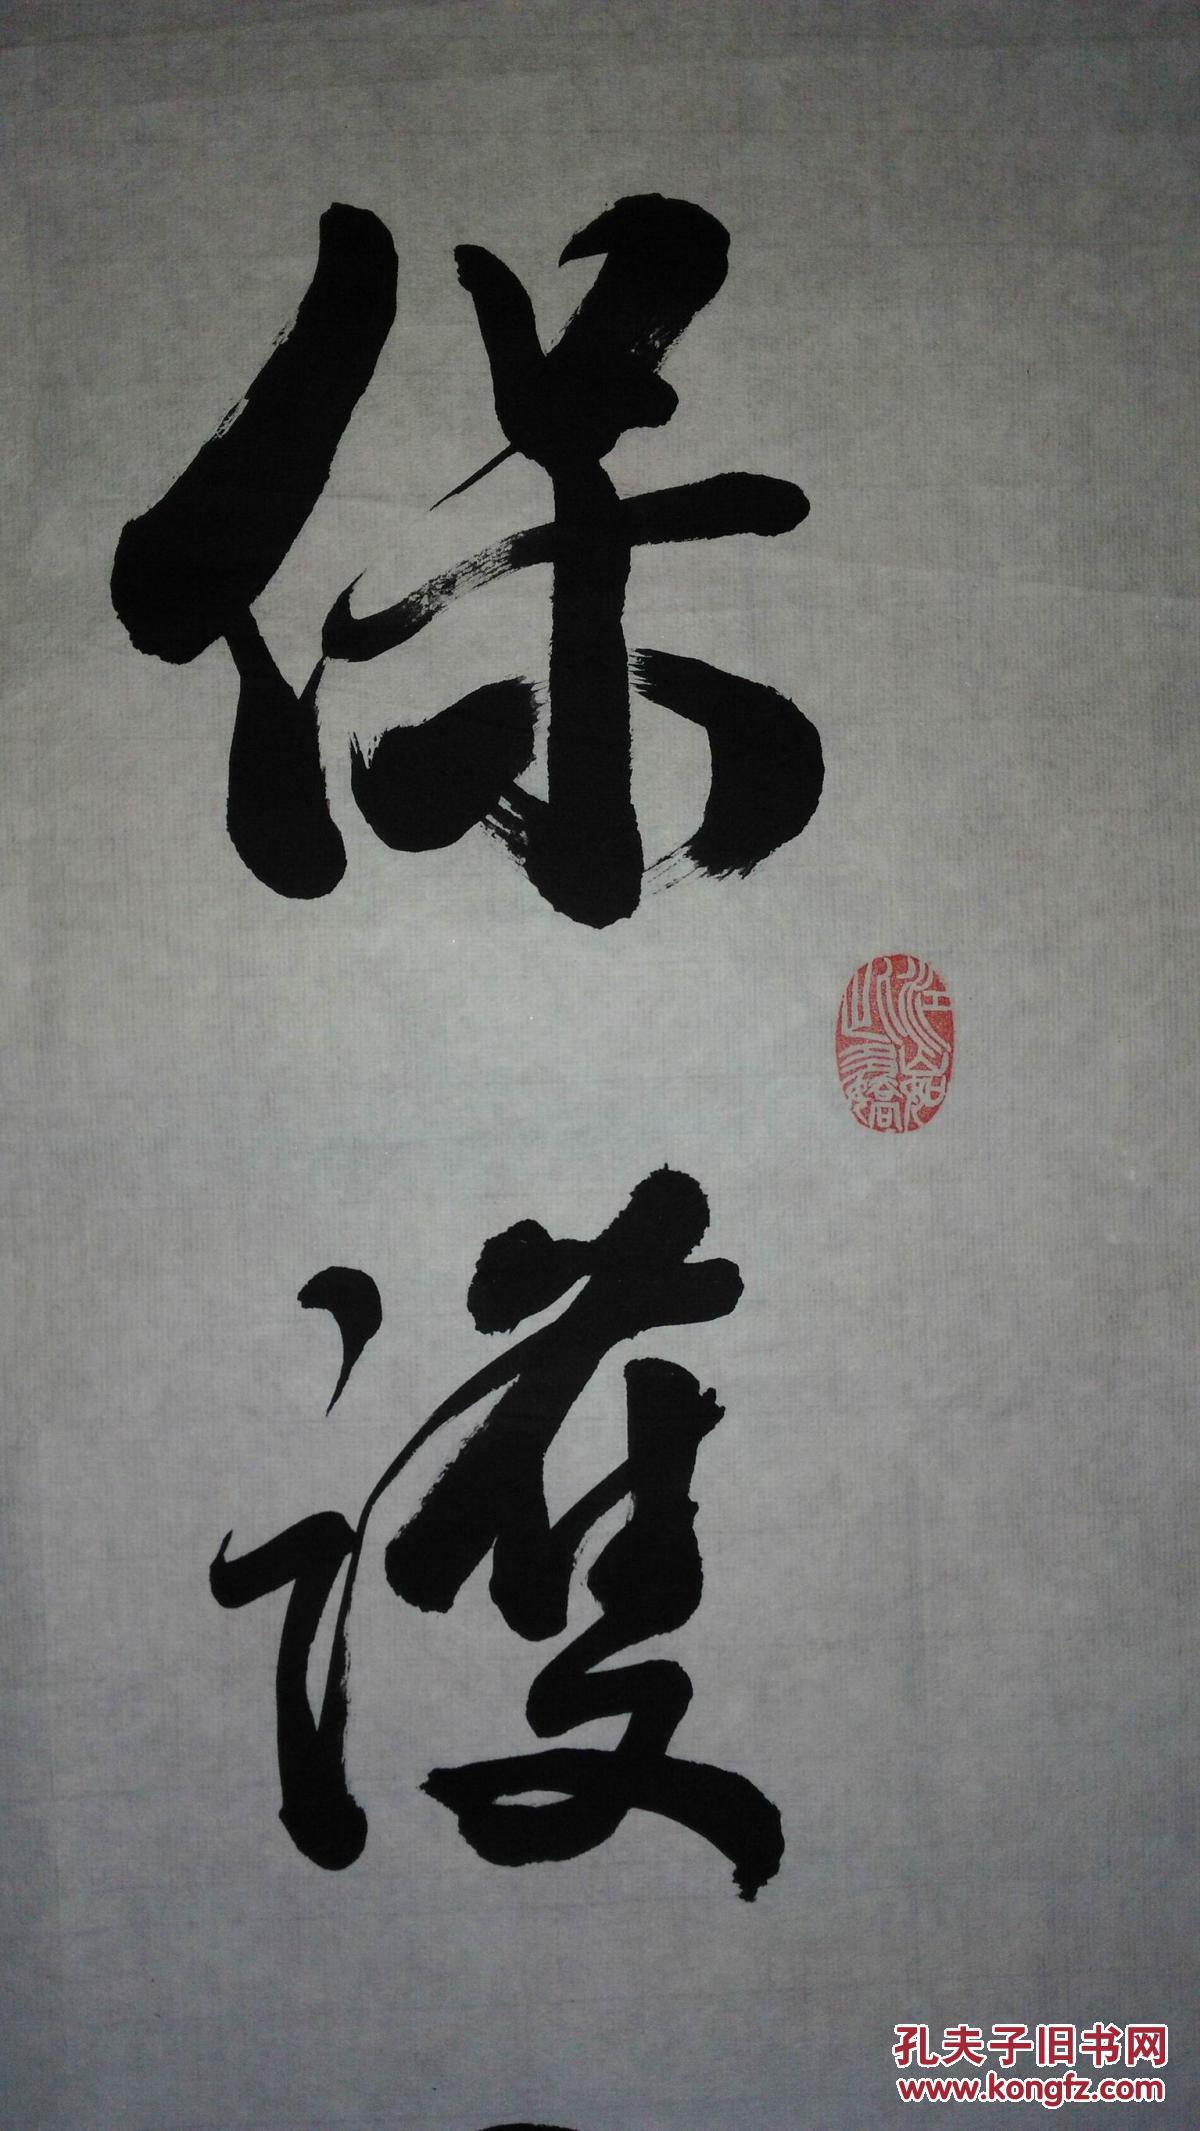 保
護
孔夫子旧书网
www.kongfz.com